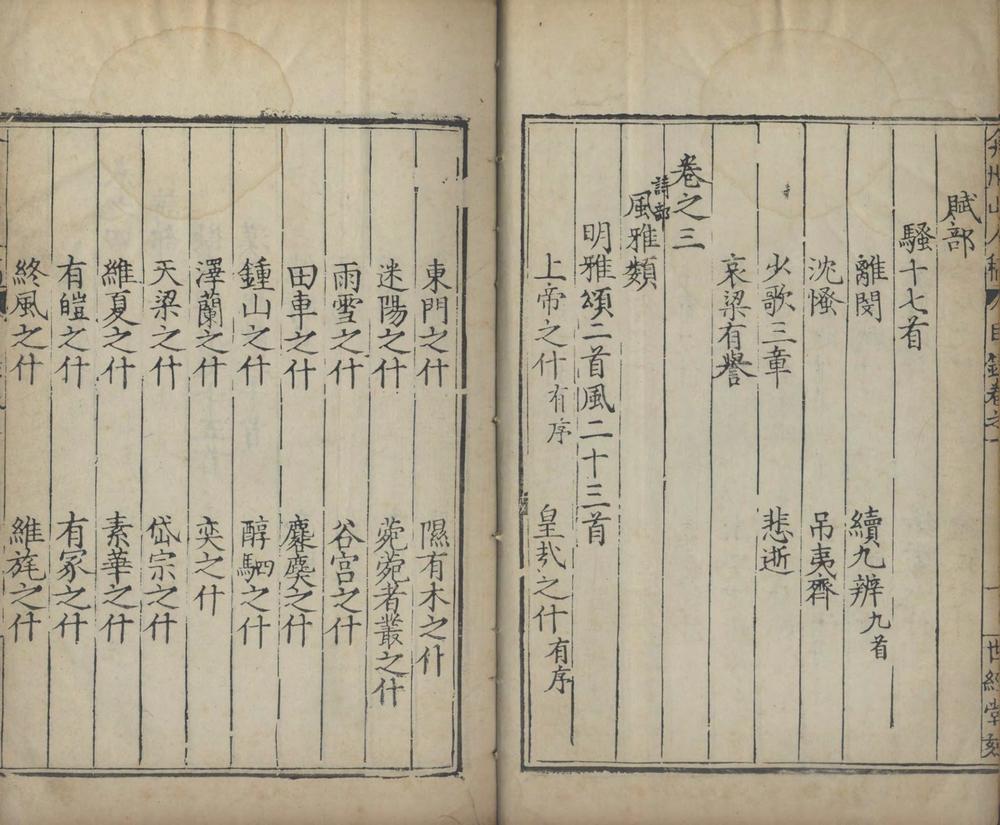 弇州山人稿 目錄卷之一 一 世經堂刻
賦部
騷十七首
離閔 續九辨九首
沈慅 吊夷齊
少歌三章 悲逝
哀梁有譽
卷之三
詩部
風雅類
明雅頌二首風二十三首
上帝之什有序 皇哉之什有序
東門之什 隰有木之什
迷陽之什 菀菀者叢之什
雨雪之什 谷宮之什
田車之什 麐麌之什
鍾山之什 醇駟之什
澤蘭之什 奕之什
天梁之什 岱宗之什
維夏之什 素華之什
有皚之什 有冢之什
終風之什 維旄之什